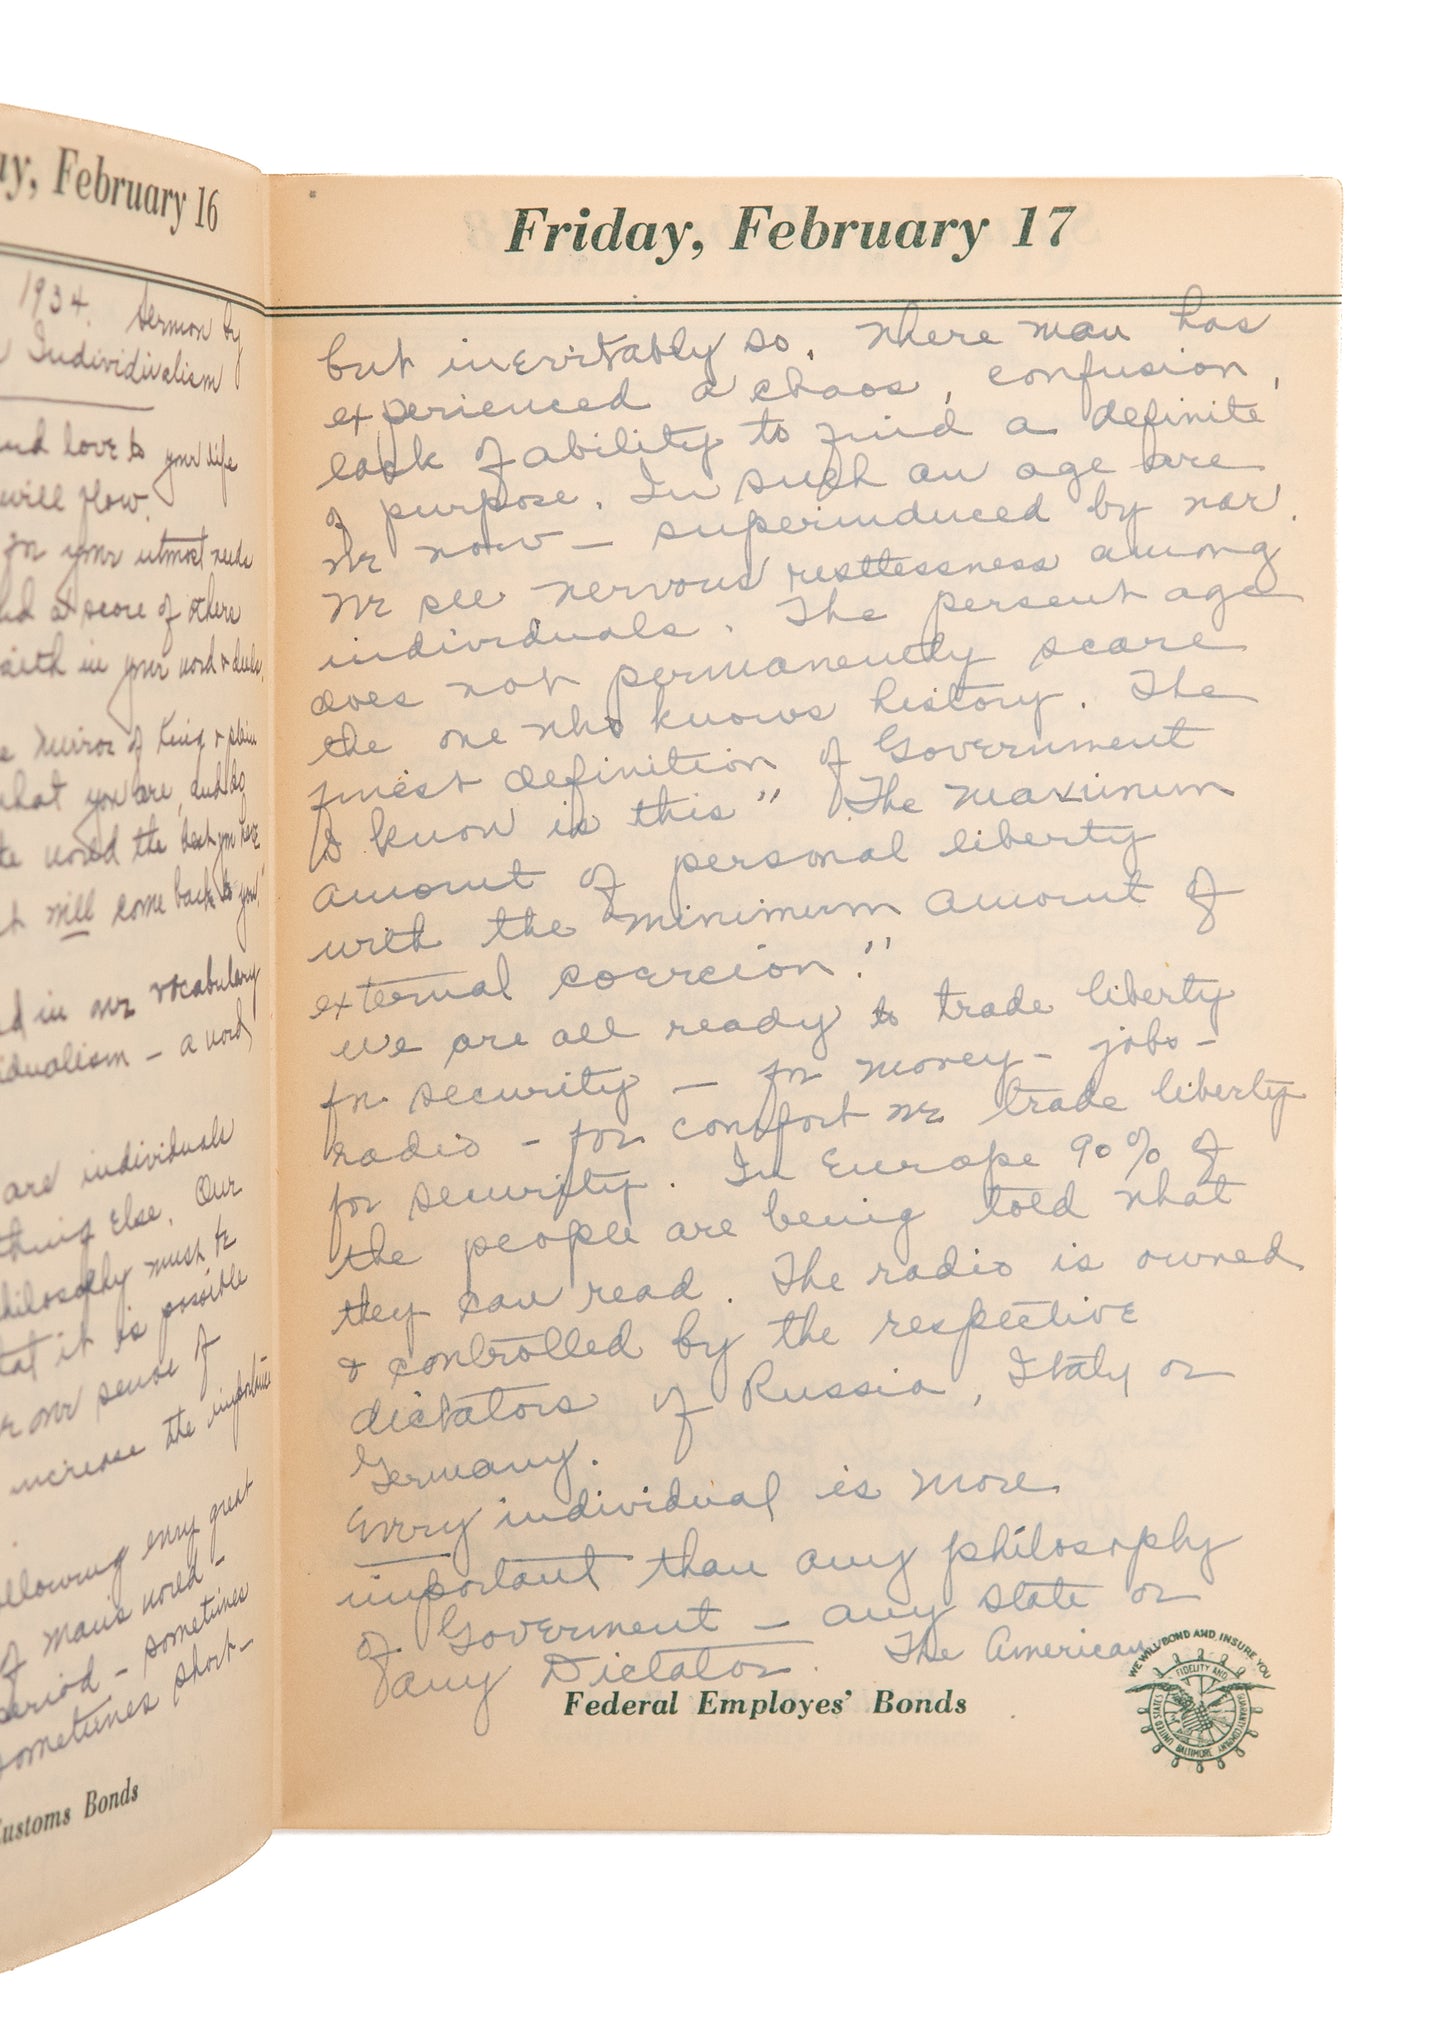 ay, February 16
1934. Sermon by
Individualism
and love to your life
will flow.
for your utmost needs
score of others
faith in your word & deeds,
Mirror of King & slave
what you are, and do
the world the best you have
will come back to you"
in our vocabulary
idualism – a word
are individuals
thing else. Our
philosophy must be
that it is possible
our sense of
increase the
following every great
of man's world –
period – sometimes
sometimes short –
Customs Bonds
Friday, February 17
but inevitably so. Where man has
experienced a chaos, confusion,
lack of ability to find a definite
of purpose. In such an age are
we now – superinduced by war.
We see nervous restlessness among
individuals. The persent age
does not permanently scare
the one who knows history. The
finest definition of Government
I know is this " The maximum
amount of personal liberty
with the minimum amount of
external coercion."
We are all ready to trade liberty
for security – for money – jobs –
radio – for comfort we trade liberty
for security. In Europe 90% of
the people are being told what
they can read. The radio is owned
& controlled by the respective
dictators of Russia, Italy or
Germany.
Every individual is more
important than any philosophy
of Goverment – any state or
any Dictator. The American
Federal Employes' Bonds
WE WILL BOND AND INSURE YOU
UNITED STATES FIDELITY AND GUARANTY COMPANY
BALTIMORE